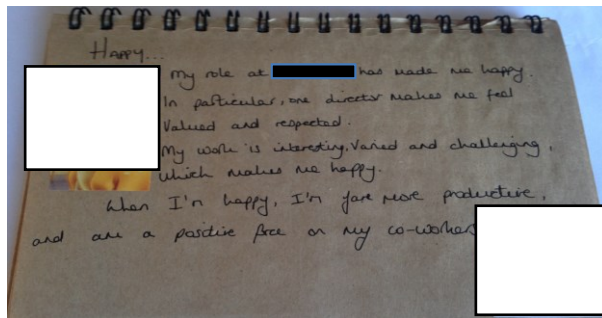 Happy...
My role at has made me happy.
In particular, one director makes me feel
Valued and respected.
My work is interesting, varied and challenging,
which makes me happy.
When I'm happy, I'm far more productive,
and are a positive force on my co-workers